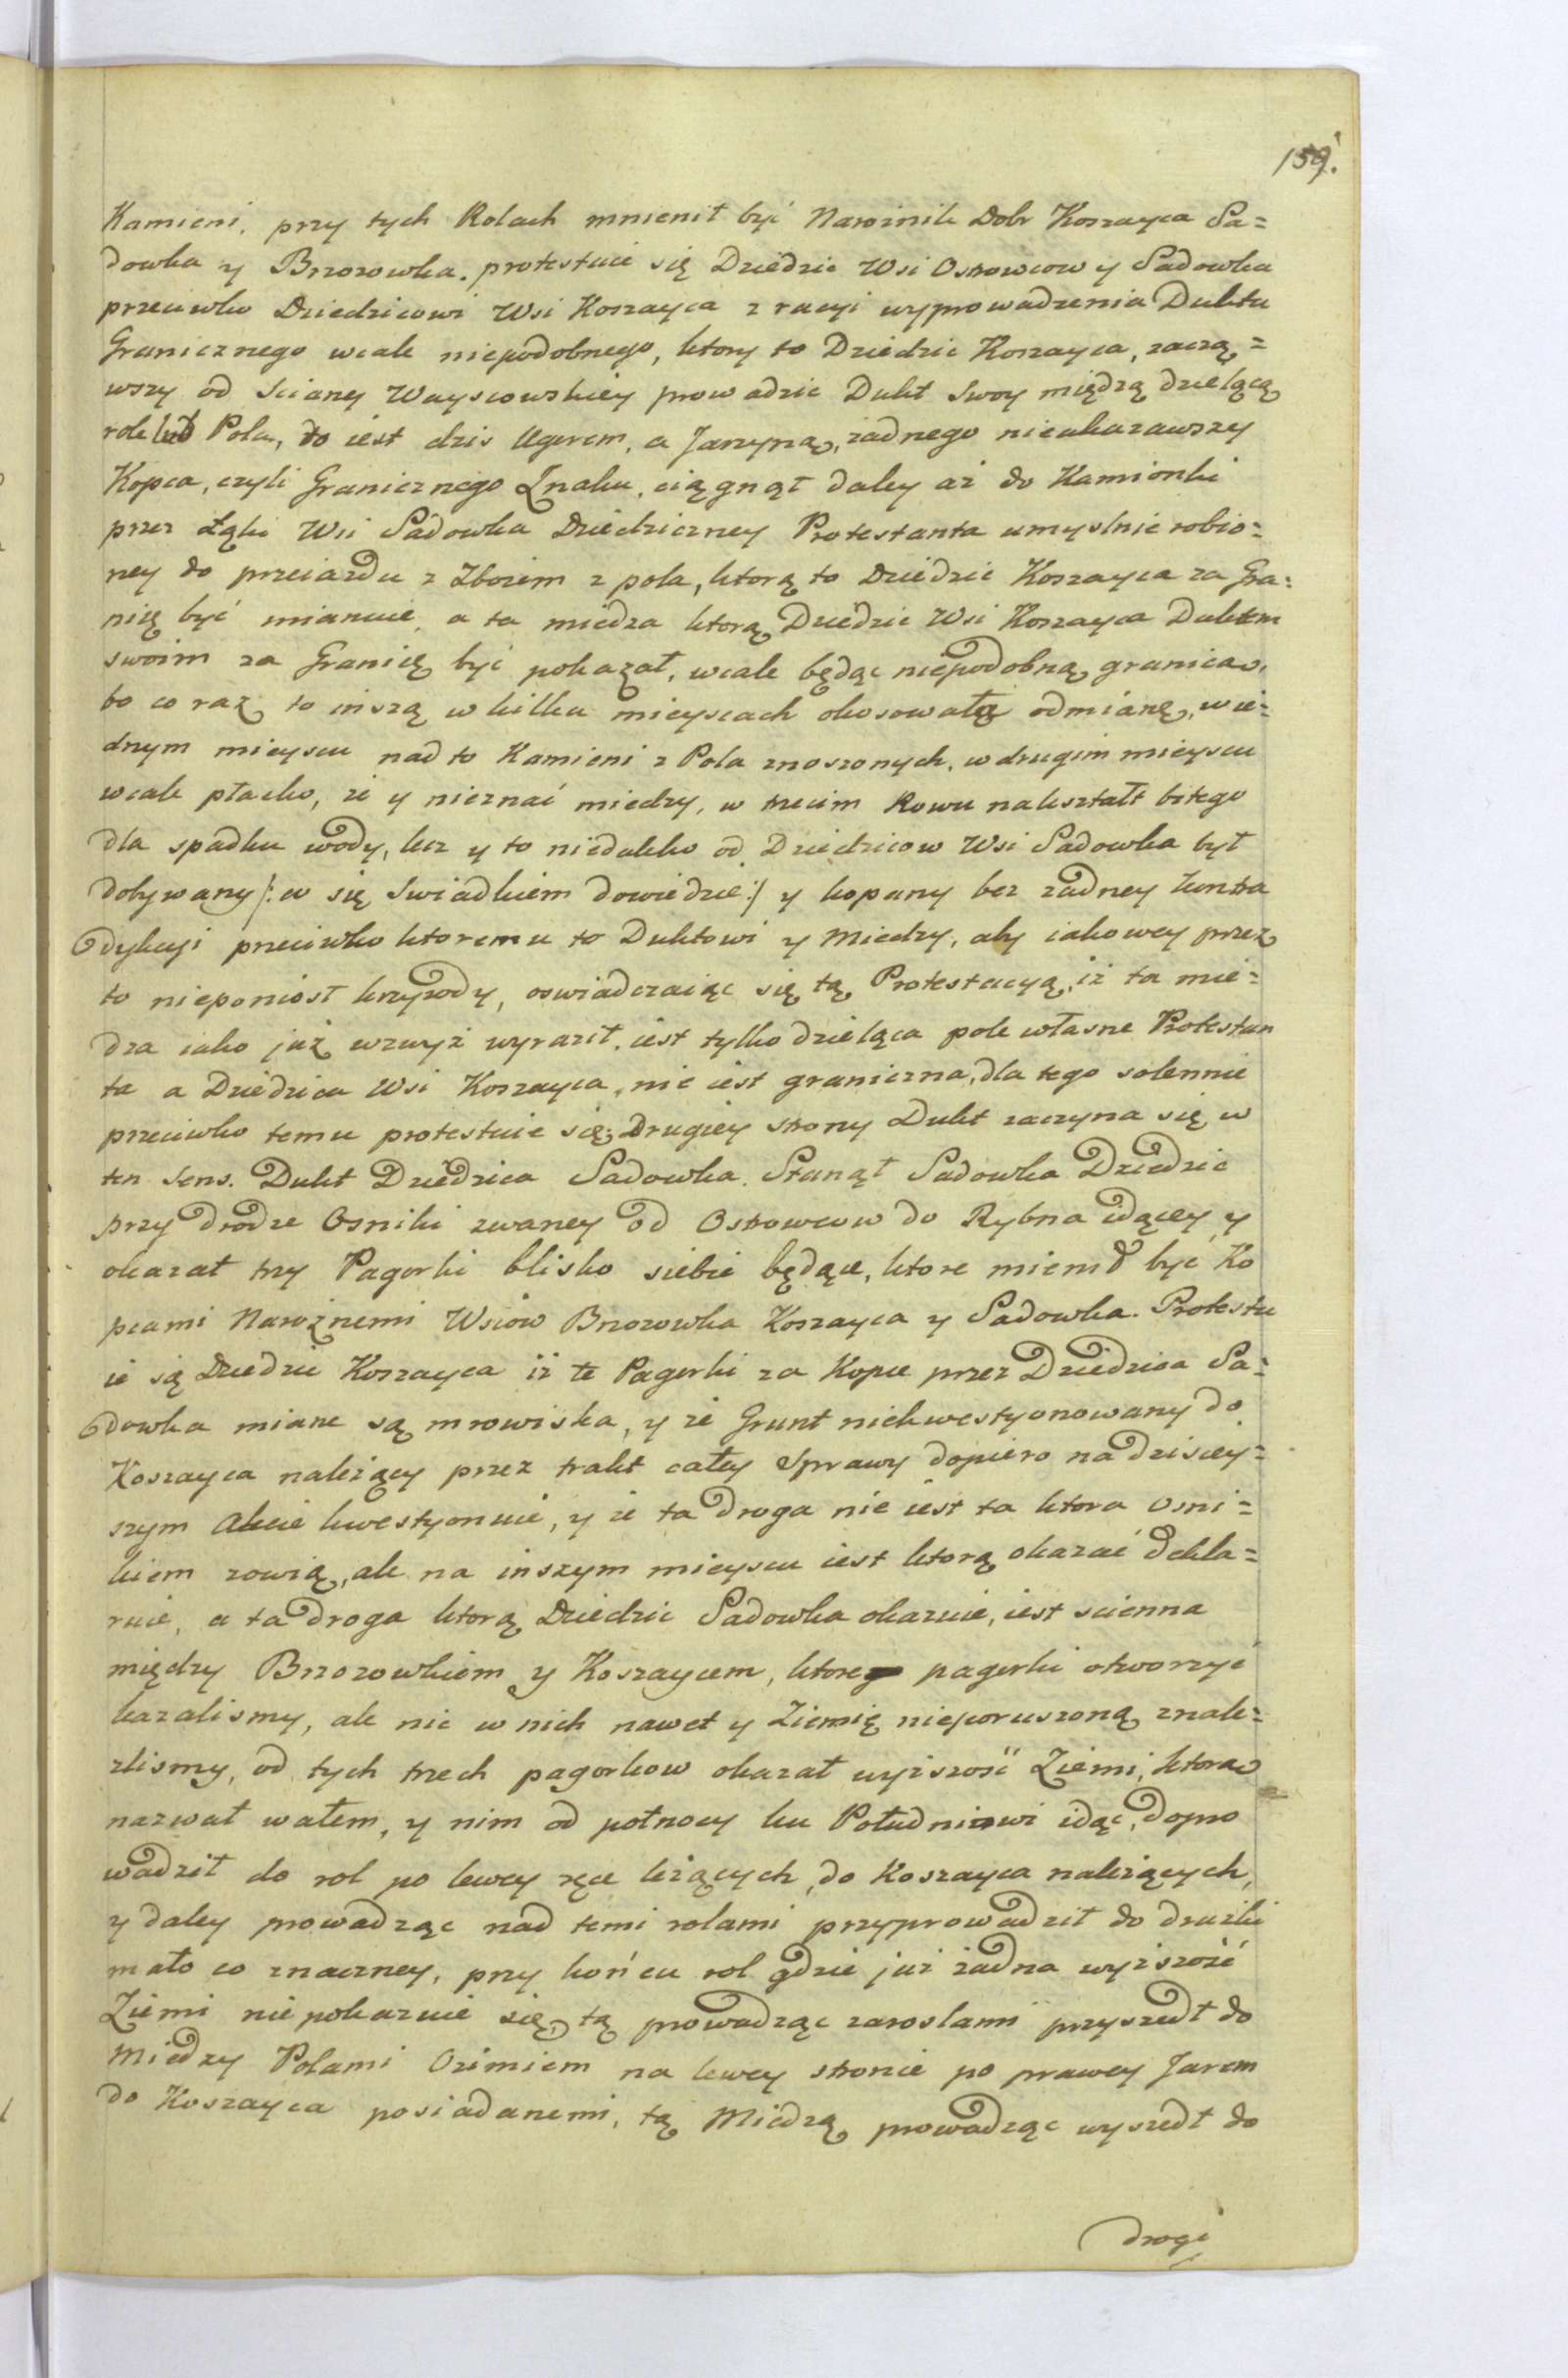 159.
Kamieni, przy tych Rolach mnienił być Narożnik Dobr Koszayca Sa=
dowka y Brzozowka. protestuie się Dziedzic Wsi Ostrowcow y Sadowka
przeciwko Dziedzicowi Wsi Koszayca z racyi wyprowadzenia Duktu
Granicznego wcale niepodobnego, ktory to Dziedzic Koszayca, zaczą=
wszy od Sciany Wayscowskiey prowadzic Dukt Swoy międzą dzielącą
role lub Pola, to iest dzis Ugorem, a Jarzyną, zadnego nieukazawszy
Kopca, czyli Granicznego Znaku, ciągnął daley aż do Kamionki
przez Łąki Wsi Sadowka Dziedziczney Protestanta umyslnie robio=
ney do przeiazdu z Zbozem z pola, ktorą to Dziedzic Koszayca za Gra=
nię być mianuie, a ta miedza ktorą Dziedzic Wsi Koszayca Duktem
swoim za Granię być pokazał, wcale będąc niepodobną granica,
bo co raz to inszą w kilku mieyscach okosowałą odmianę, w ie=
dnym mieyscu nad to Kamieni z Pola znoszonych, w drugim mieyscu
wcale płacko, że y nieznać miedzy, w trzecim Rowu nakształt bitego
dla spadku wody, lecz y to niedaleko od Dziedzicow Wsi Sadowka był
dobywany /: co się Swiadkiem dowiedzie :/ y kopany bez zadney kontra
dykcyi przeciwko ktoremu to Duktowi y Miedzy, aby iakowey przez
to nieponiosł krzywdy, oswiadczaiąc się tą Protestacyą, iż ta mie=
dza iako już wzwyż wyraził, iest tylko dzieląca pole własne Protestan
ta a Dziedzica Wsi Koszayca, nie iest graniczna, dla tego solennie
przeciwko temu protestuie się; Drugiey strony Dukt zaczyna się w
ten Sens. Dukt Dziedzica Sadowka. Stanął Sadowka Dziedzic
przy drodze Osniki zwaney od Ostrowcow do Rybna idącey y
okazał trzy Pagorki blisko siebie będące, ktore mienił być Ko
pcami Narożnemi Wsiow Brzozowka Koszayca y Sadowka. Protestu
ie się Dziedzic Koszayca iż te Pagorki za Kopce przez Dziedzica Sa=
dowka miane są mrowiska, y że Grunt niekwestyonowany do
Koszayca należący przez trakt całey Sprawy dopiero na dzisiey=
szym Akcie kwestyonuie, y że ta droga nie iest ta ktora Osni=
kiem zowią, ale na inszym mieyscu iest ktorą okazać dekla=
ruie, a ta droga ktorą Dziedzic Sadowka okazuie, iest scienna
między Brzozowkiem y Koszaycem, ktore pagorki otworzyć
kazalismy, ale nic w nich nawet y Ziemię nieporuszoną znale=
zlismy, od tych trzech pagorkow okazał wyższość Ziemi, ktorą
nazwał wałem, y nim od połnocy ku Południowi idąc, dopro
wadził do rol po lewey ręce leżących, do Koszayca należących,
y daley prowadząc nad temi rolami przyprowadził do drużki
mało co znaczney, przy końcu rol gdzie już żadna wyższość
Ziemi niepokazuie się, tą prowadząc zaroslami przyszedł do
Miedzy Polami Ozimiem na lewey stronie po prawey Jarem
do Koszayca posiadanemi, tą Miedzą prowadząc wyszedł do
drogi